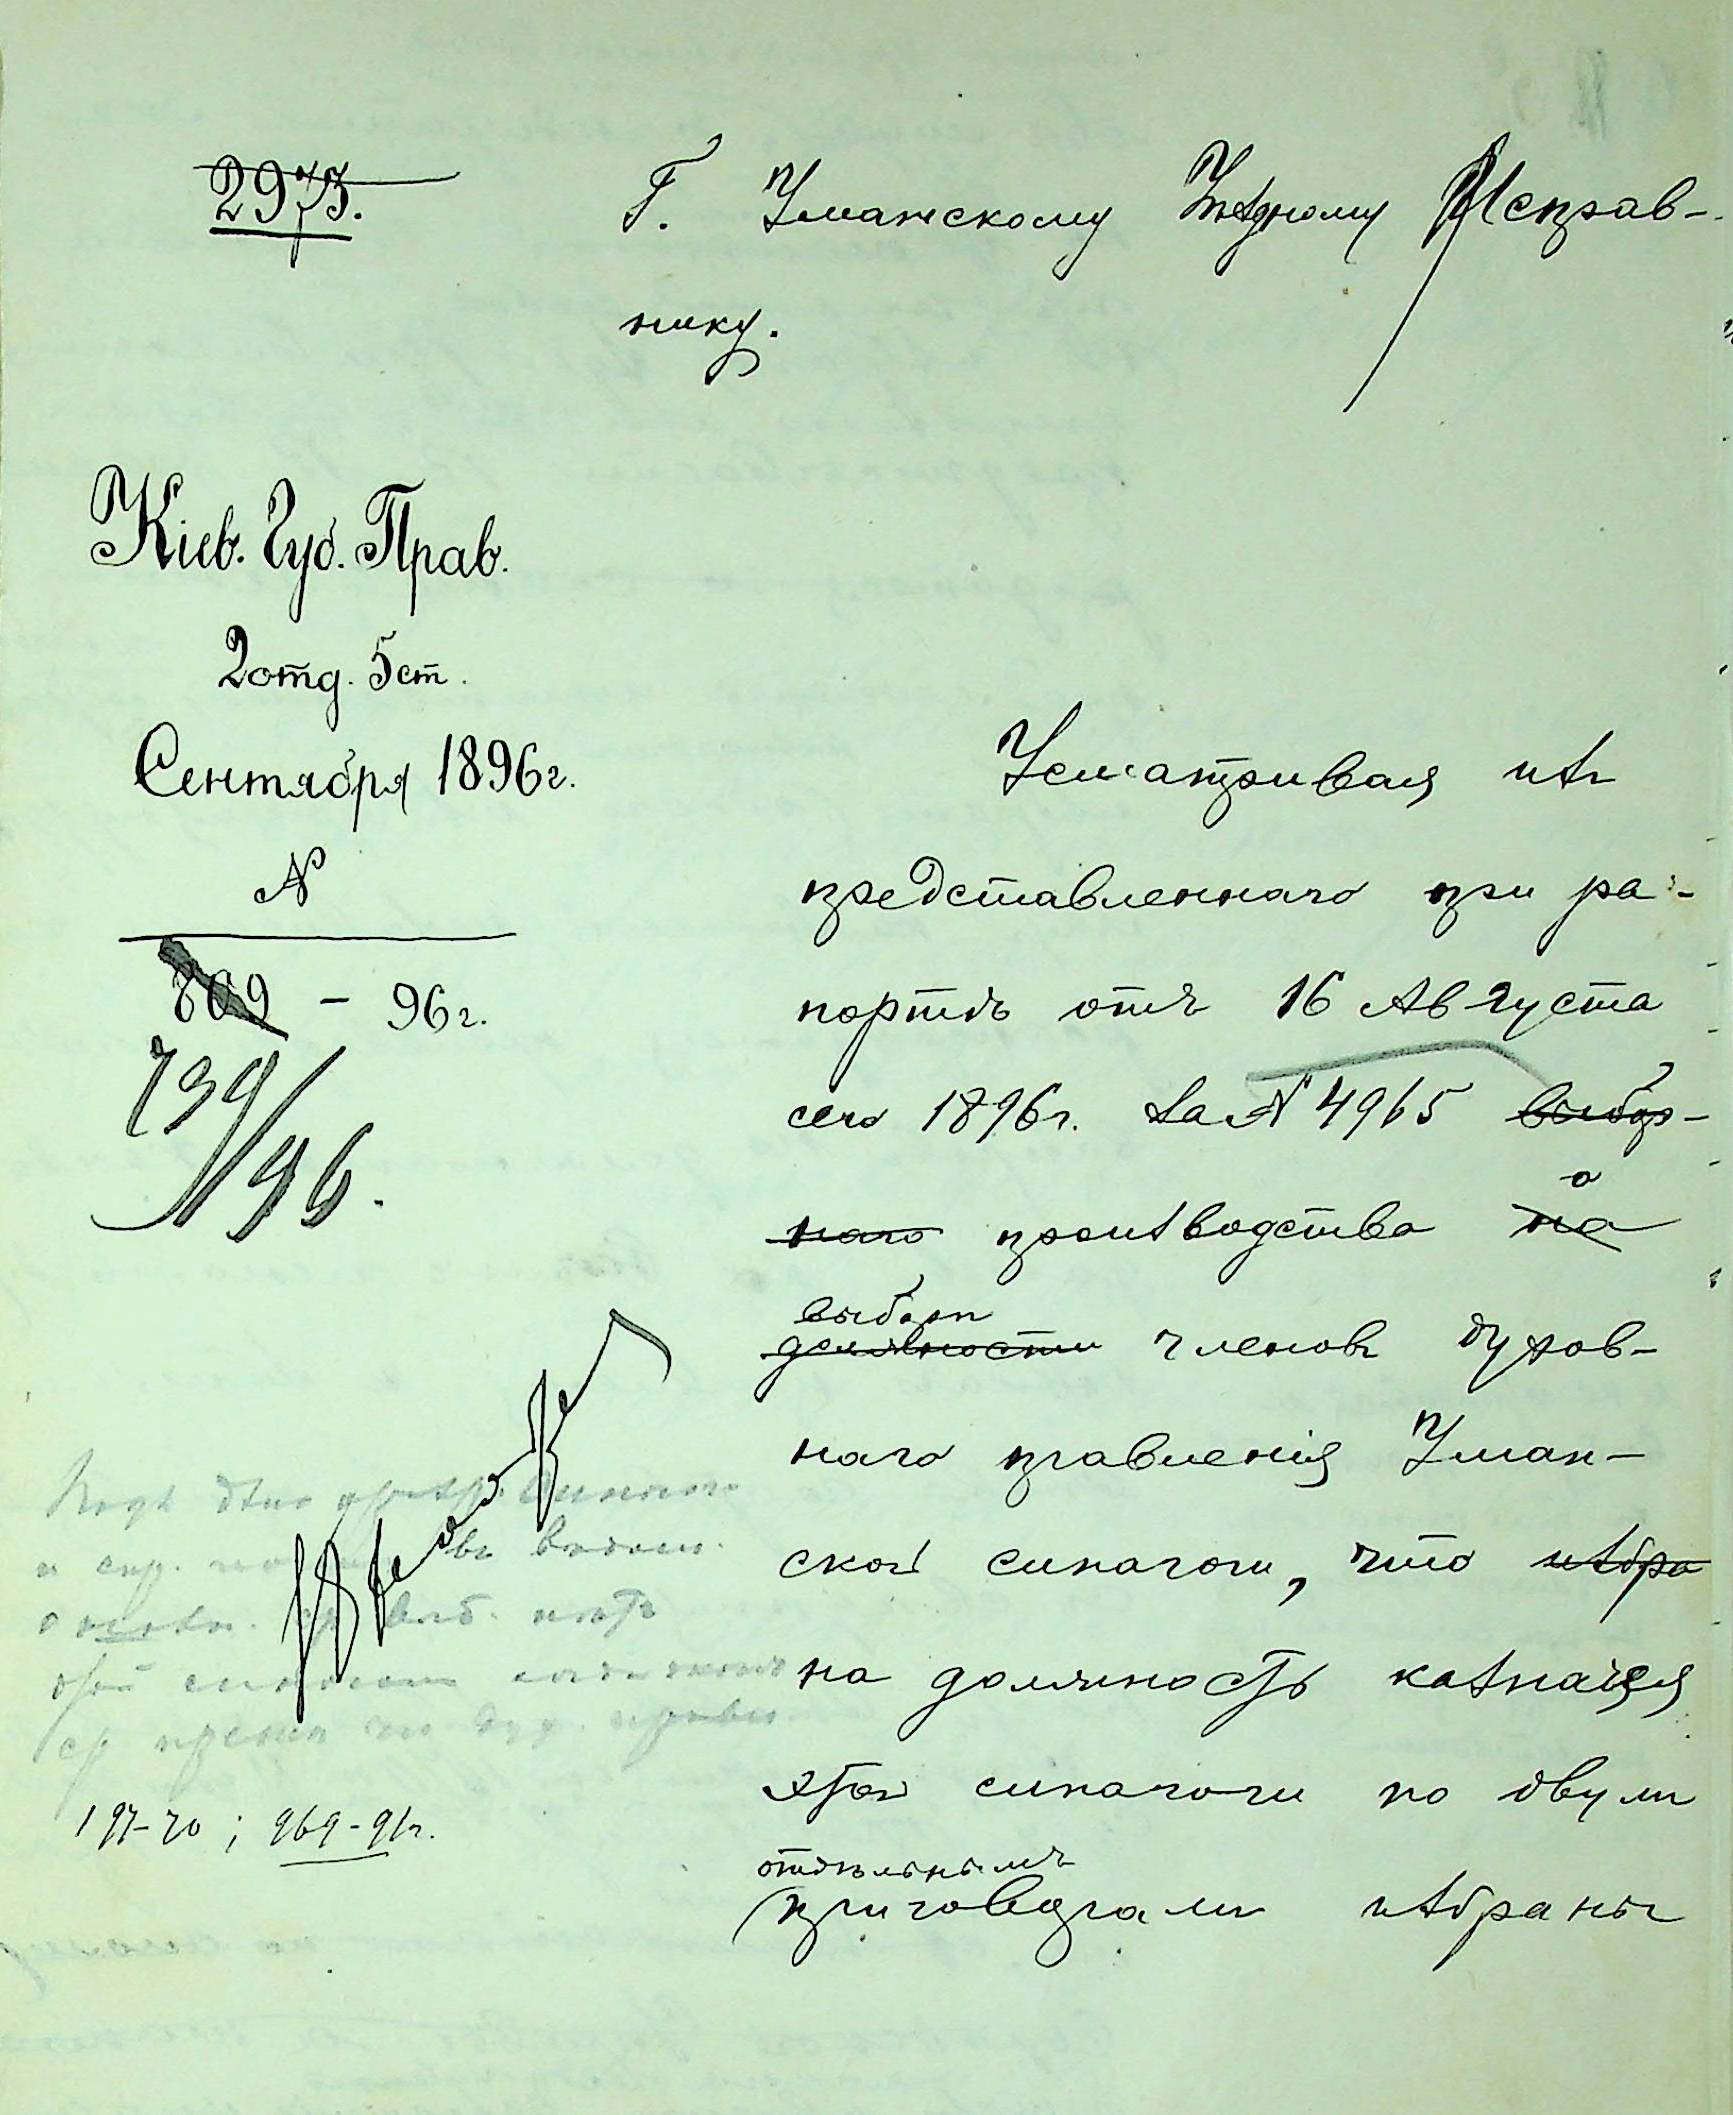 2973.
Г. Уманскому Уѣздному Исправ-
нику.
Кіев. Губ. Прав.
2 отд. 5 ст.
Сентября 1896 г.
N
809 - 96 г.
739/96.
Усматривая изъ
представленнаго при ра-
портѣ отъ 16 Августа
сего 1896 г. за N 4965 выбор-
наго производства на о
выборѣ
должности членовъ духов-
наго правленія Уман-
ской синагоги, что избра
на должность казначея
этой синагоги по двумъ
отдѣльнымъ
приговорами избраны
197-70 ; 969-91 г.